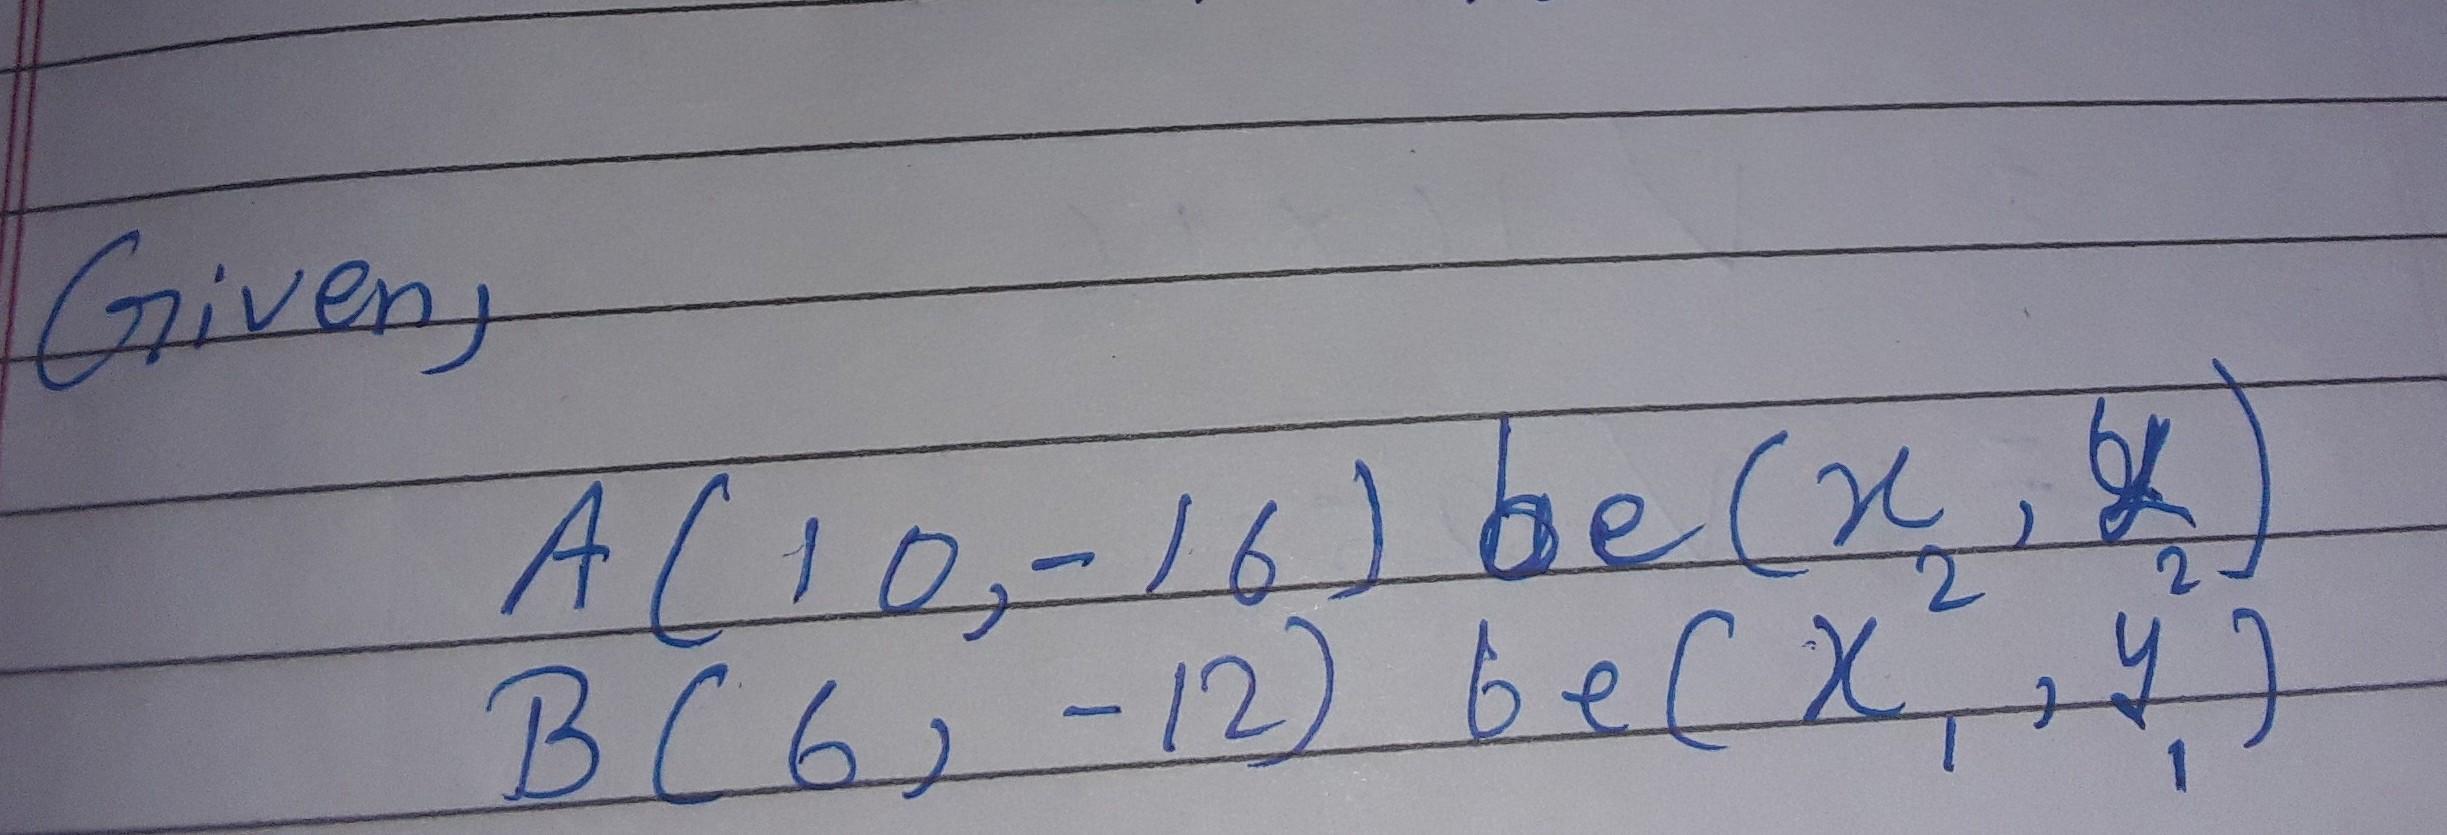 Given,
A(10,-16) be(x₂, y₂)
B(6, -12) be(x₁, y₁)